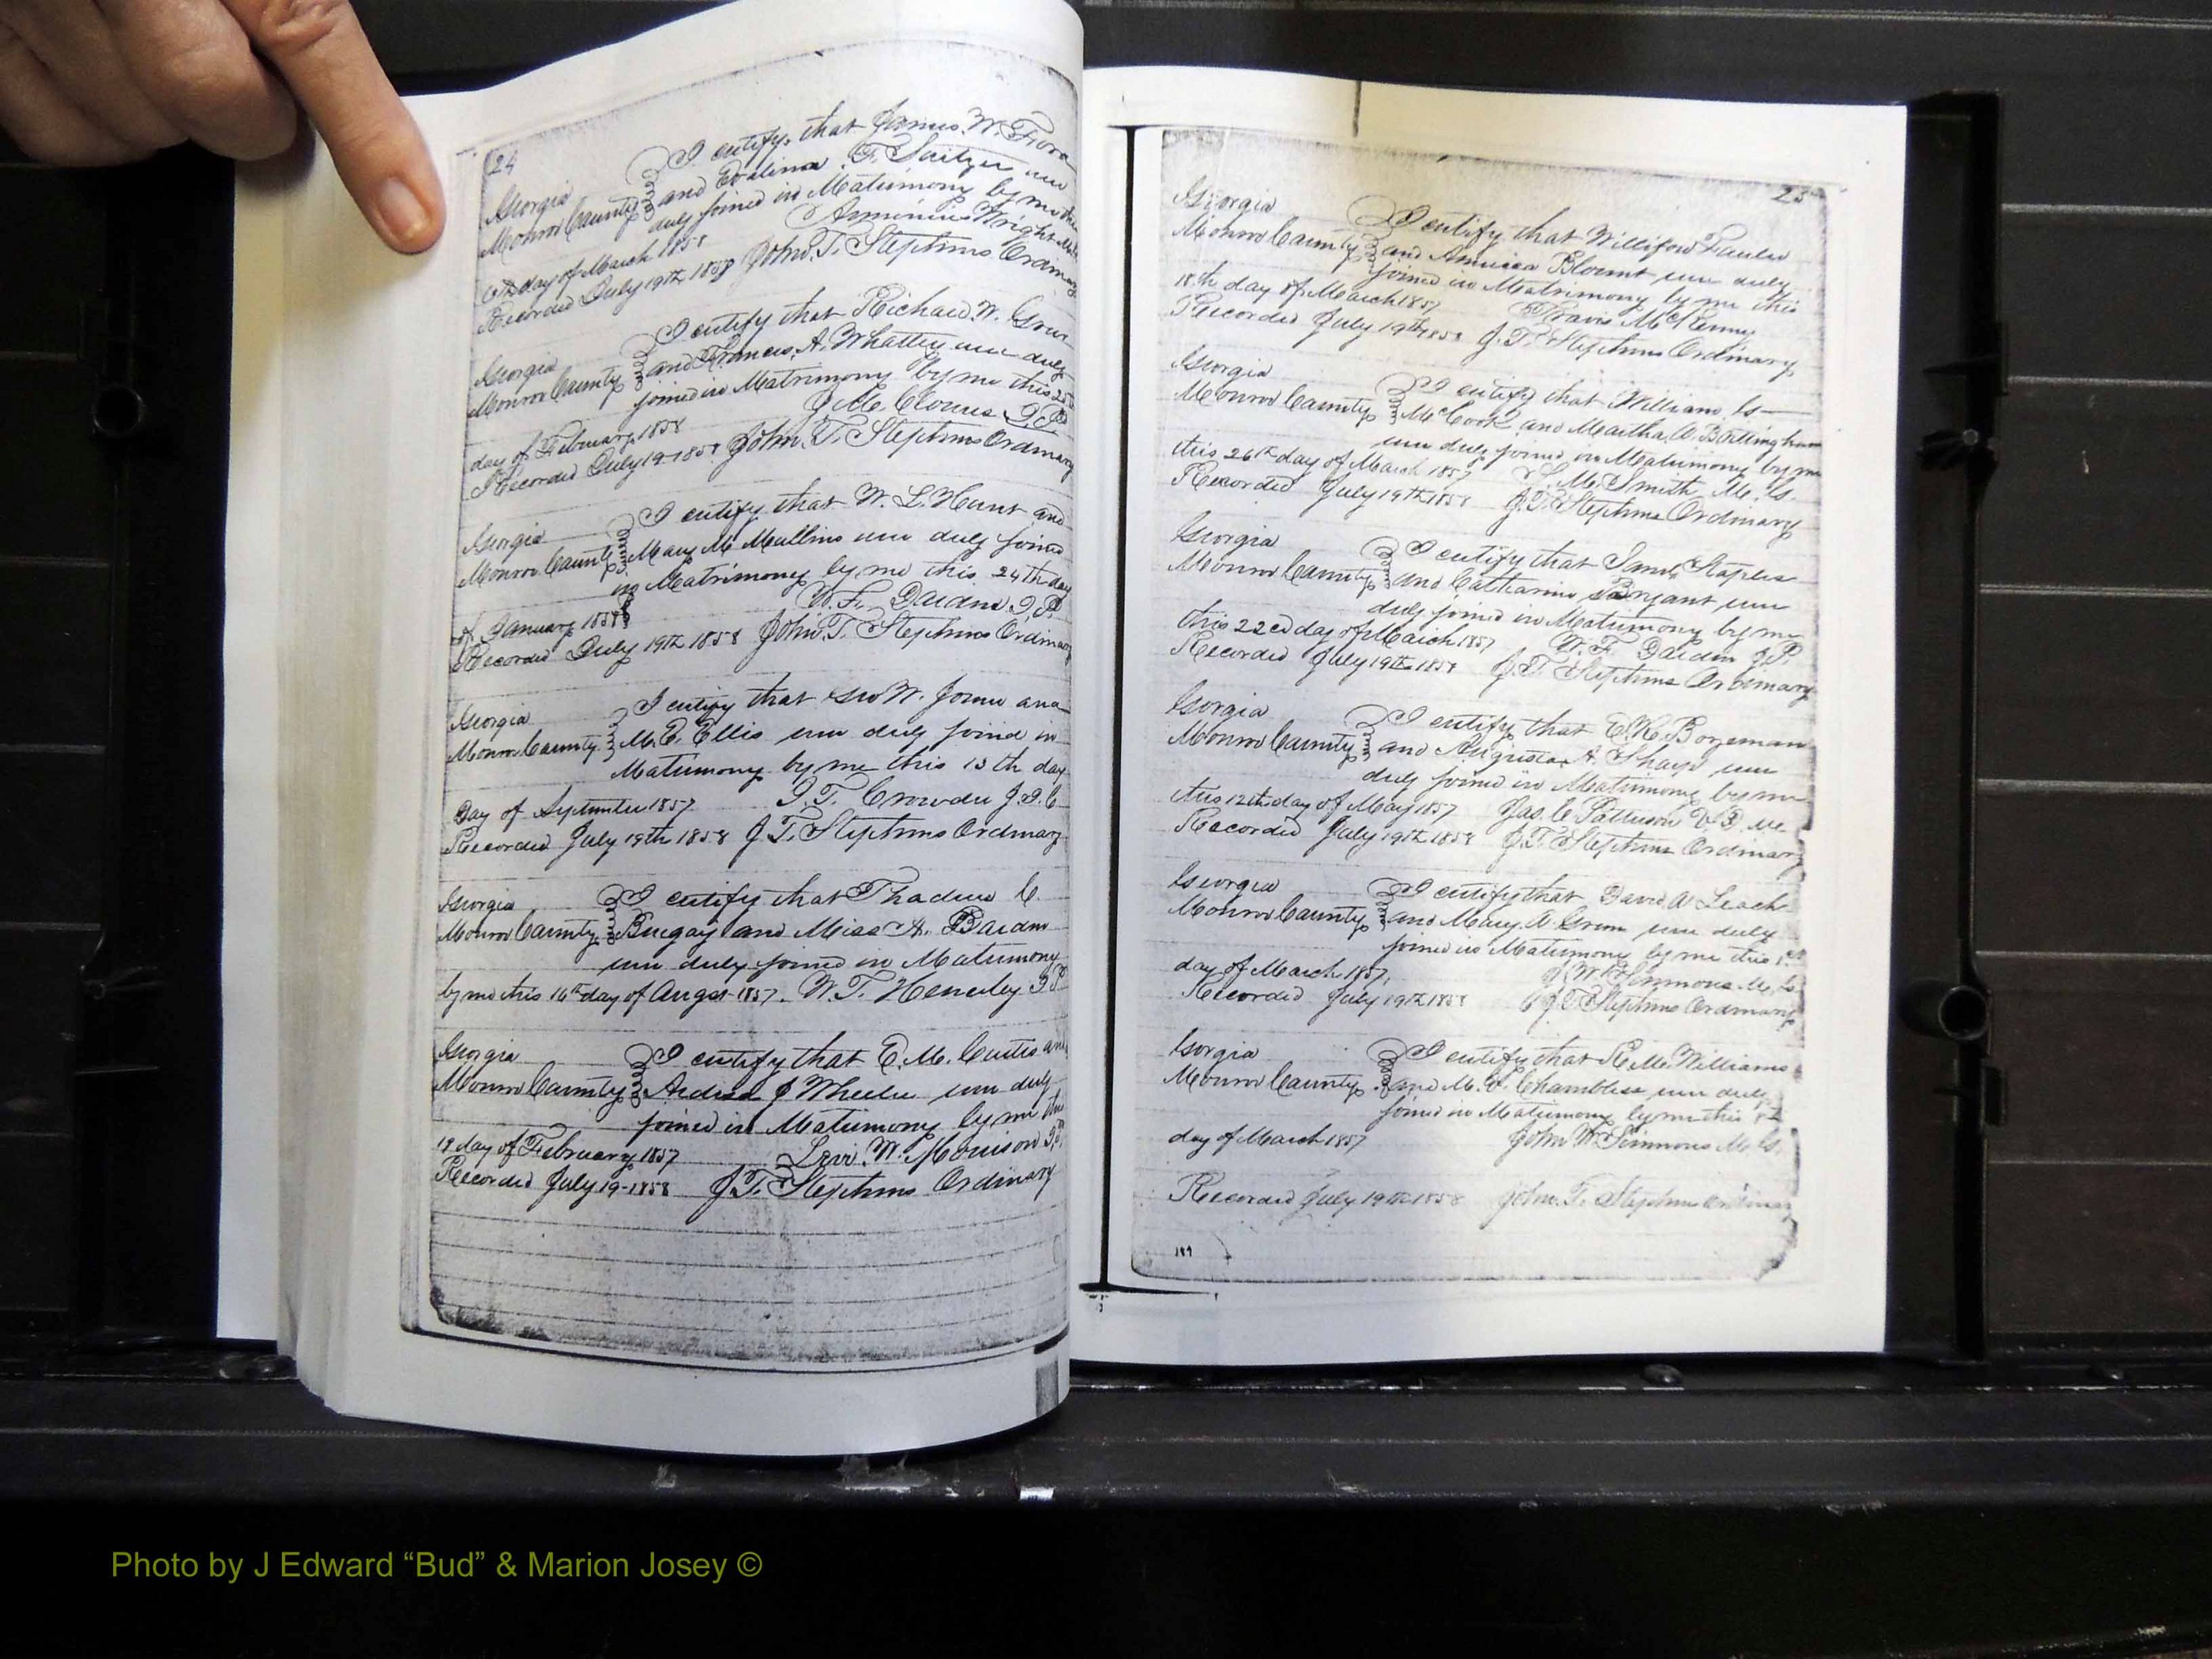 24
Georgia
Monroe County
I certify that James W.
and F. were
duly joined in Matrimony by me this
Wright
6th day of March 1858
Recorded July 19th 1858 John T. Stephens Ordinary
Georgia
Monroe County
I certify that Richard W.
and Frances A. Whatley were duly
joined in Matrimony by me this
day of February 1858
Recorded July 19 1858 John T. Stephens Ordinary
Georgia
Monroe County
I certify that W. L. Hunt and
Mary M Mullins were duly joined
in Matrimony by me this 24th day
of January 1858 W. F. Darden J. P.
Recorded July 19th 1858 John T. Stephens Ordinary
Georgia
Monroe County
I certify that Geo W. and
M. E. Ellis were duly joined in
Matrimony by me this 13th day
Day of September 1857 Crowder J. I. C
Recorded July 19th 1858 J. T. Stephens Ordinary
Georgia
Monroe County
I certify that C.
and Miss A.
were duly joined in Matrimony
by me this 16th day of 1857. W. T. J P
Georgia
Monroe County
I certify that E. M. Curtis and
J Wheeler were duly
joined in Matrimony by me this
19 day of February 1857 Levi W. J P
Recorded July 19-1858 J. T. Stephens Ordinary
25
Georgia
Monroe County
I certify that
and Blount were duly
joined in Matrimony by me this
18th day of March 1857 Travis McKenny
Recorded July 19th 1858 J. T. Stephens Ordinary
Georgia
Monroe County
I certify that William G—
McCook and Martha
were duly joined in Matrimony by me
this 26th day of March 1857 Smith M. G.
Recorded July 19th 1858 J. T. Stephens Ordinary
Georgia
Monroe County
I certify that Staples
and Catharine Bryant were
duly joined in Matrimony by me
this 22cd day of March 1857 W. F. Darden J. P.
Recorded July 19th 1858 J. T. Stephens Ordinary
Georgia
Monroe County
I certify that E. R. Borzeman
and Augusta A. Sharp were
duly joined in Matrimony by me
this 12th day of May 1857 Jas. C Patterson V. D. M.
Recorded July 19th 1858 J. T. Stephens Ordinary
Georgia
Monroe County
I certify that David A. Leach
and Mary A were duly
joined in Matrimony by me this 1st
day of March 1857, J W Simmons M. G
Recorded July 19th 1858 J T Stephens Ordinary
Georgia
Monroe County
I certify that R. M. Williams
and M. Chambliss were duly
joined in Matrimony by me this 1st
day of March 1857 John W. Simmons M. G.
Recorded July 19th 1858 John T. Stephens Ordinary
189
Photo by J Edward “Bud” & Marion Josey ©